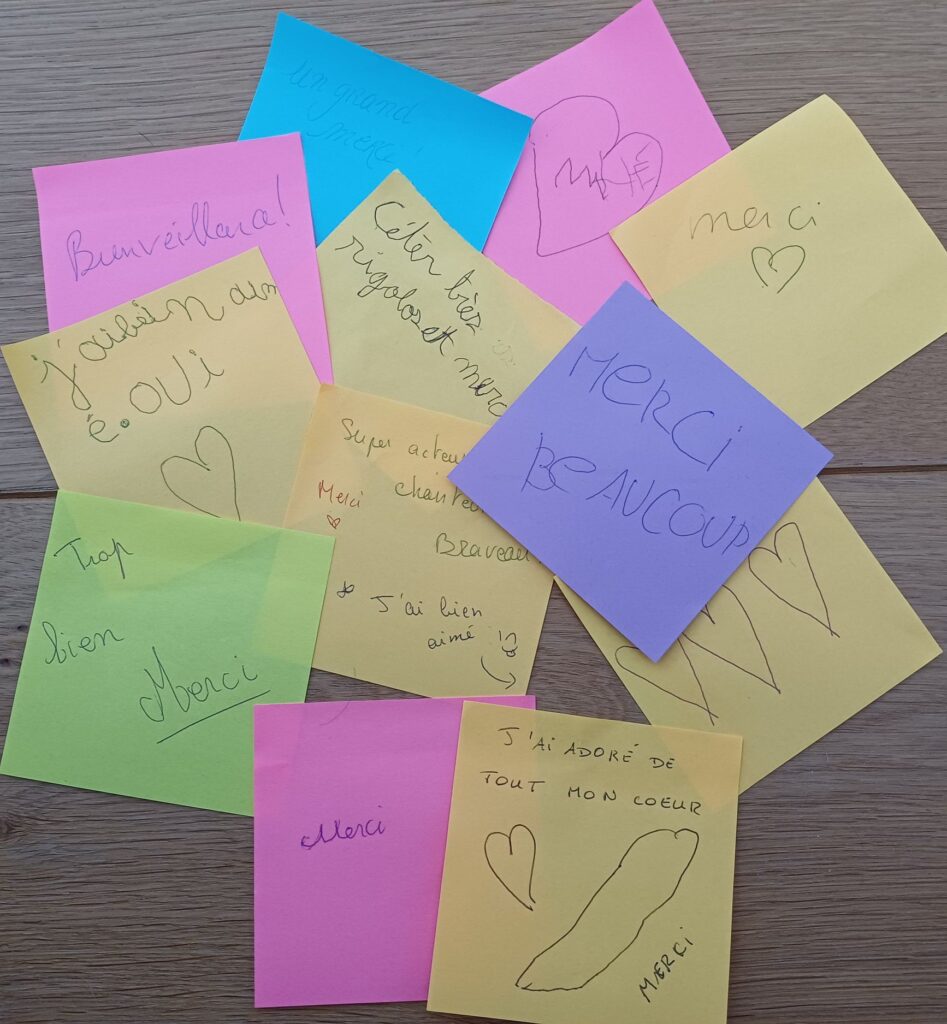 un grand
merci!
Bienveillance!
merci
Cétèr très
rigoloset merc
j'aibein aim
é. OUi
MERCi
BEAUCOUP
Super acteu
chanteu
Merci
Braveau
J'ai bien
aimé
Trop
bien
Merci
Merci
J'AI ADORÉ DE
TOUT MON COEUR
MERCi